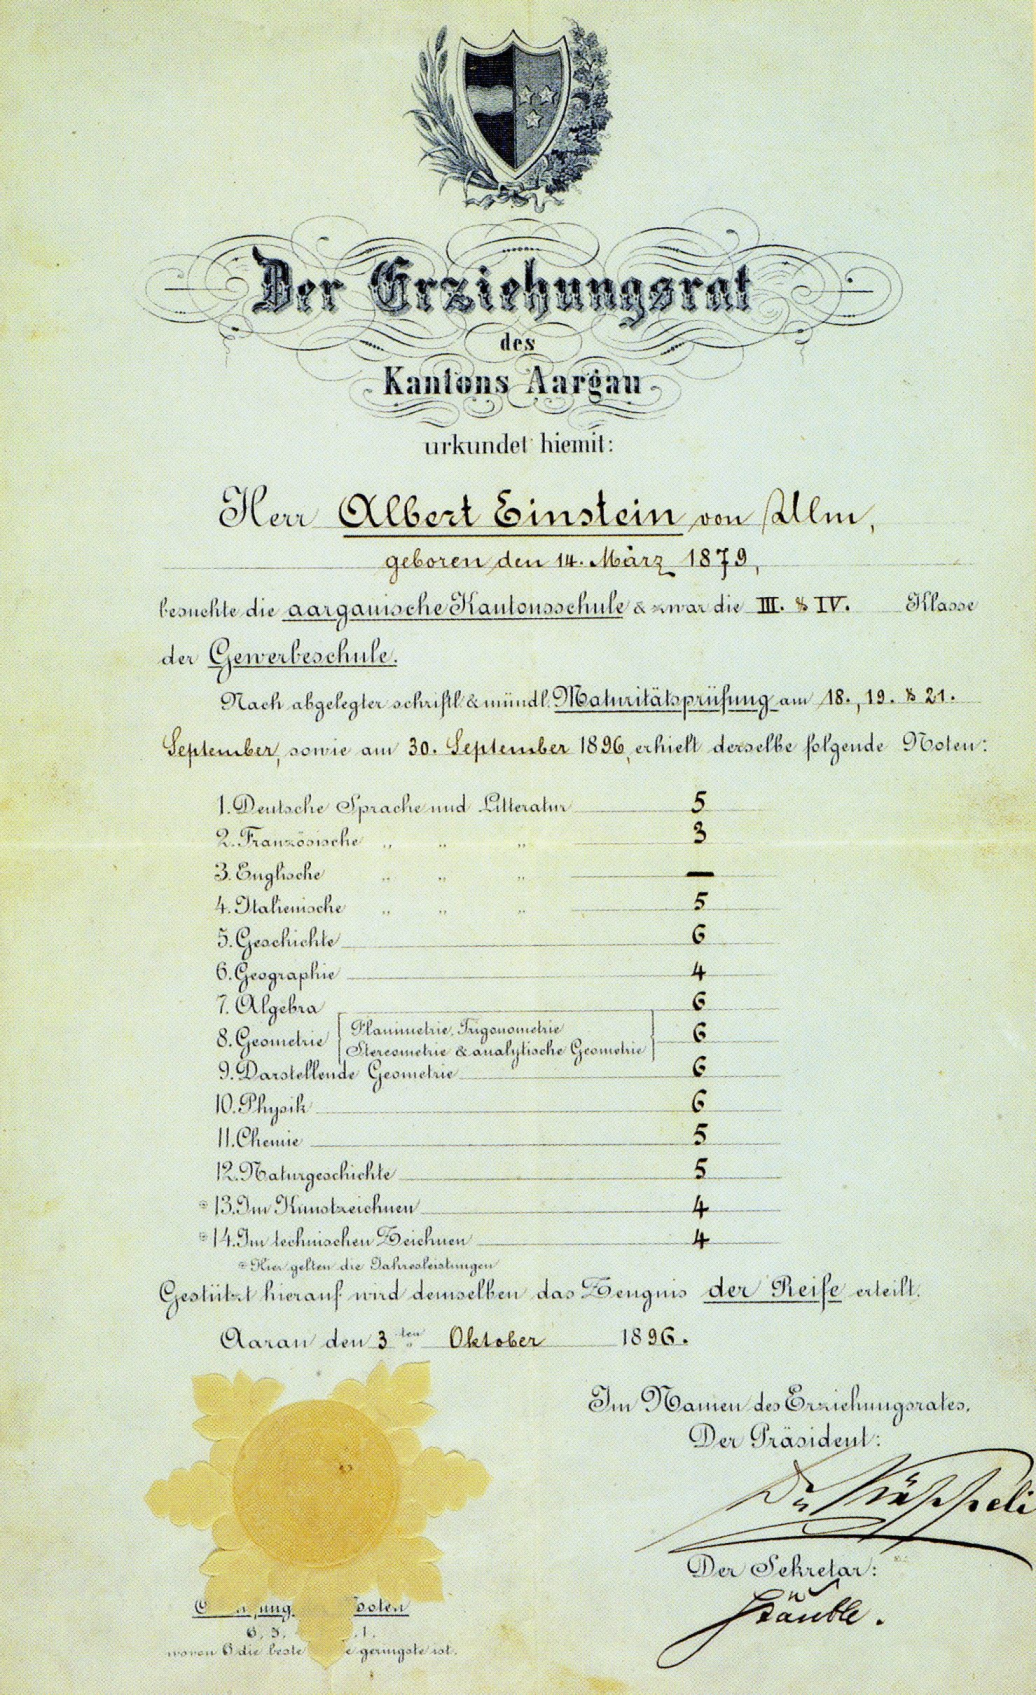 Der Erziehungsrat
des
Kantons Aargau
urkundet hiemit:
Herr Albert Einstein von Ulm,
geboren den 14. März 1879,
besuchte die aargauische Kantonsschule & zwar die III. & IV. Klasse
der Gewerbeschule.
Nach abgelegter schriftl. & mündl. Maturitätsprüfung am 18., 19. & 21.
September, sowie am 30. September 1896, erhielt derselbe folgende Noten:
1. Deutsche Sprache und Litteratur 5
2. Französische " " " 3
3. Englische " " " —
4. Italienische " " " 5
5. Geschichte 6
6. Geographie 4
7. Algebra 6
8. Geometrie Planimetrie, Trigonometrie 6
Stereometrie & analytische Geometrie
9. Darstellende Geometrie 6
10. Physik 6
11. Chemie 5
12. Naturgeschichte 5
* 13. Im Kunstzeichnen 4
* 14. Im technischen Zeichnen 4
* Hier gelten die Jahresleistungen
Gestützt hierauf wird demselben das Zeugnis der Reife erteilt.
Aarau den 3ten Oktober 1896.
Im Namen des Erziehungsrates,
Der Präsident:
Dr Käppeli
Der Sekretär:
Stäuble.
6, 5, 1.
wovon 6 die beste geringste ist.